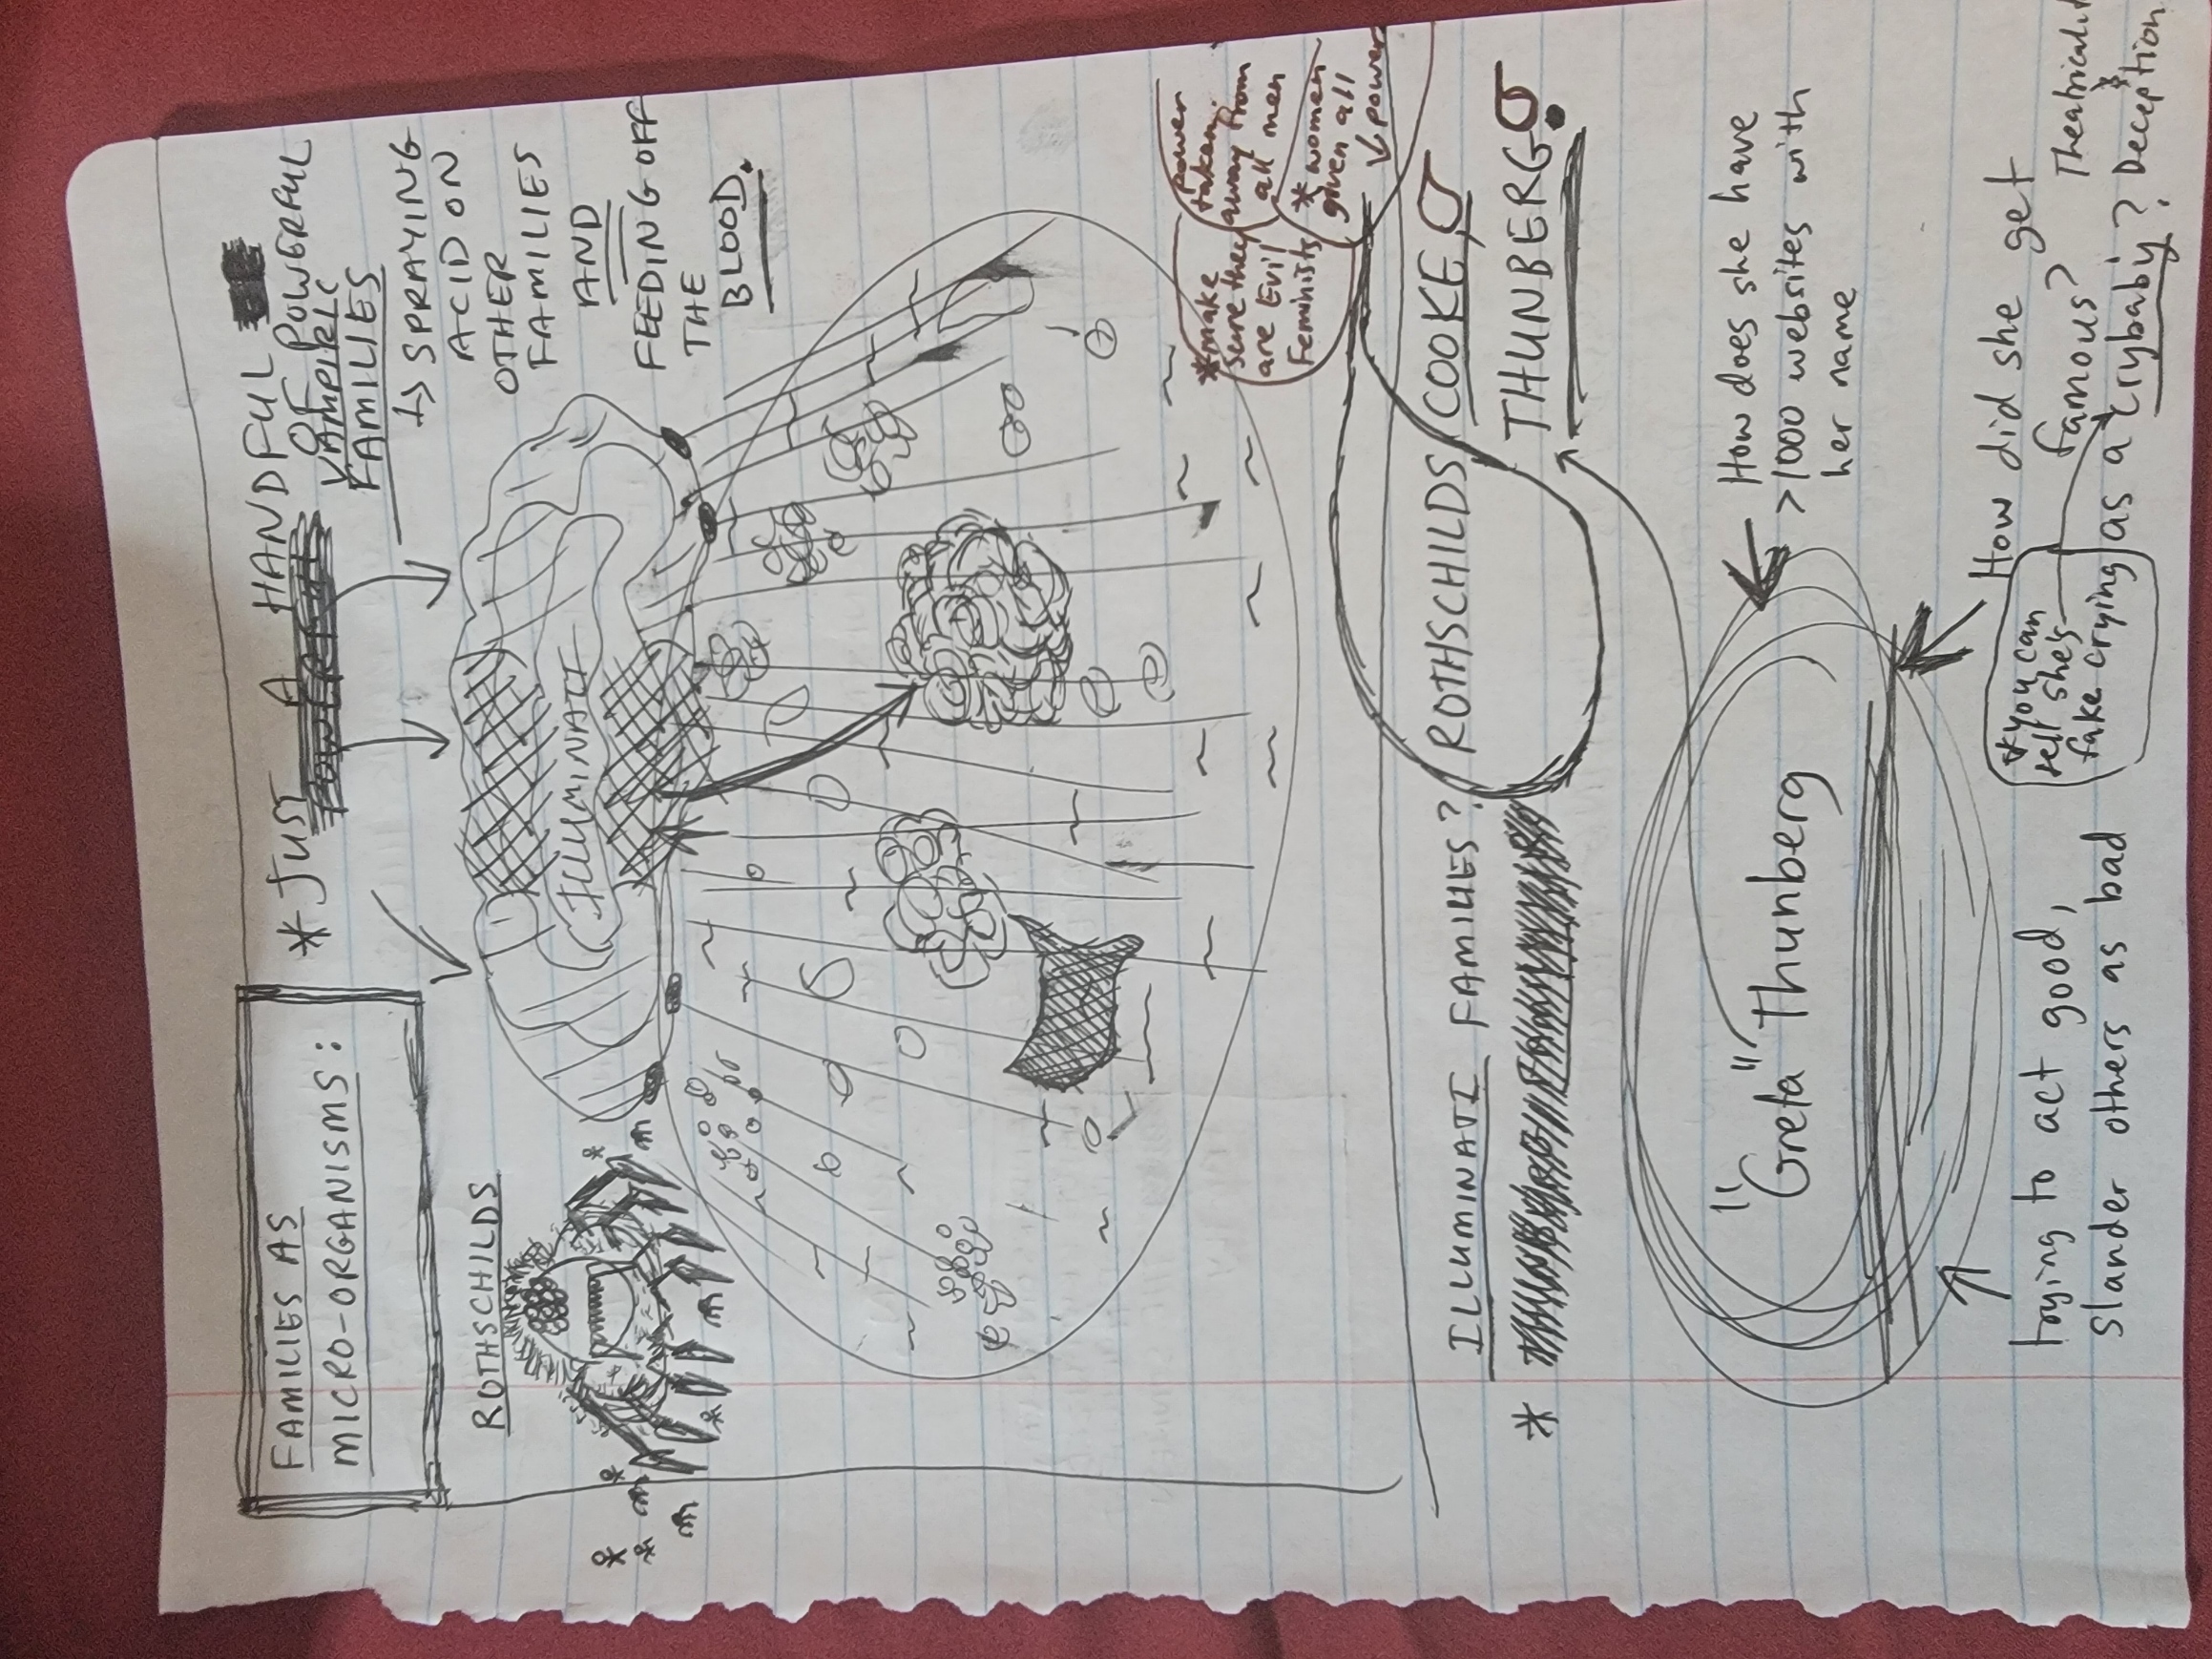 FAMILIES AS
MICRO-ORGANISMS:
* JUST A HANDFUL
POWERFUL
OF POWERFUL
VAMPIRIC
FAMILIES
↳ SPRAYING
ACID ON
OTHER
FAMILIES
AND
FEEDING OFF
THE
BLOOD.
ROTHSCHILDS
ILLUMINATI
*make
sure they
are Evil
Feminists
power
taken
away from
all men
* women
given all
↓ power
ILLUMINATI FAMILIES? ROTHSCHILDS COOKE,
THUNBERG
*
"Greta" Thunberg
How does she have
>1000 websites with
her name
trying to act good,
slander others as bad
*you can
tell she's
fake crying
How did she get
famous?
as a crybaby?
Deception